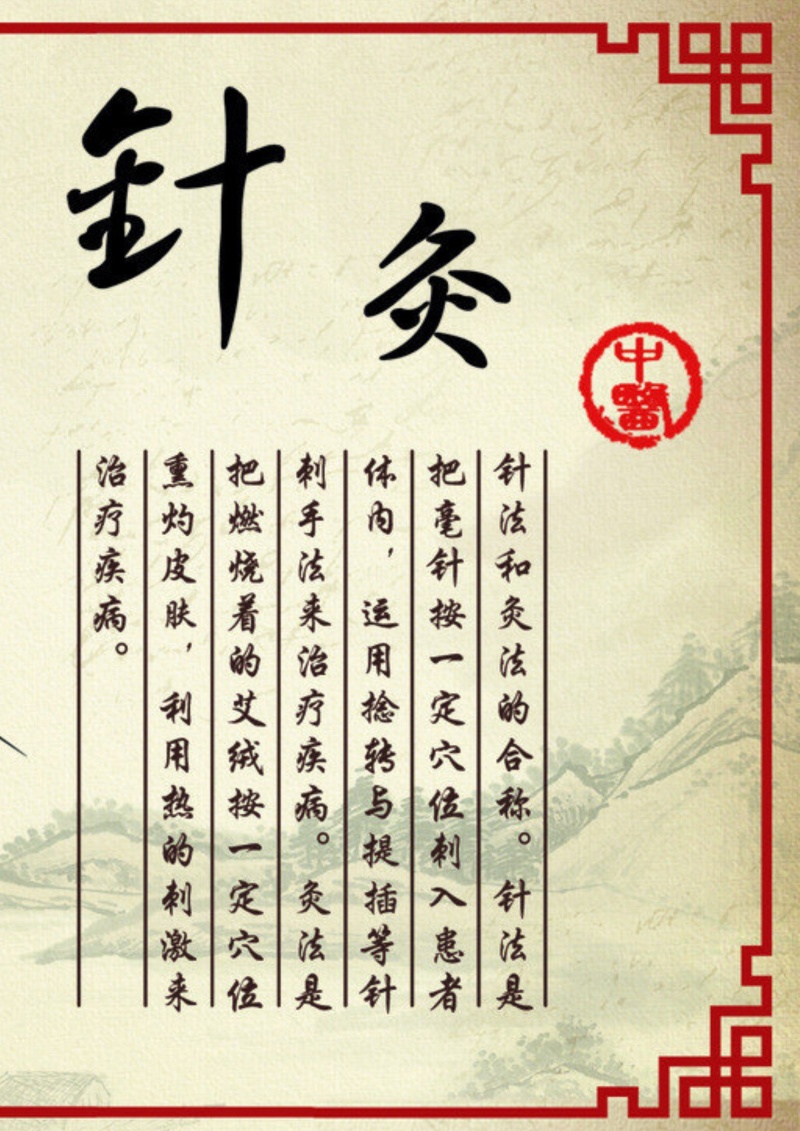 針灸
中醫
针法和灸法的合称。针法是
把毫针按一定穴位刺入患者
体内，运用捻转与提插等针
刺手法来治疗疾病。灸法是
把燃烧着的艾绒按一定穴位
熏灼皮肤，利用热的刺激来
治疗疾病。